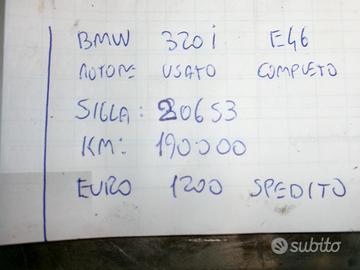 BMW 320i E46
MOTORE USATO COMPLETO
SIGLA: 206S3
KM: 190.000
EURO 1200 SPEDITO
subito